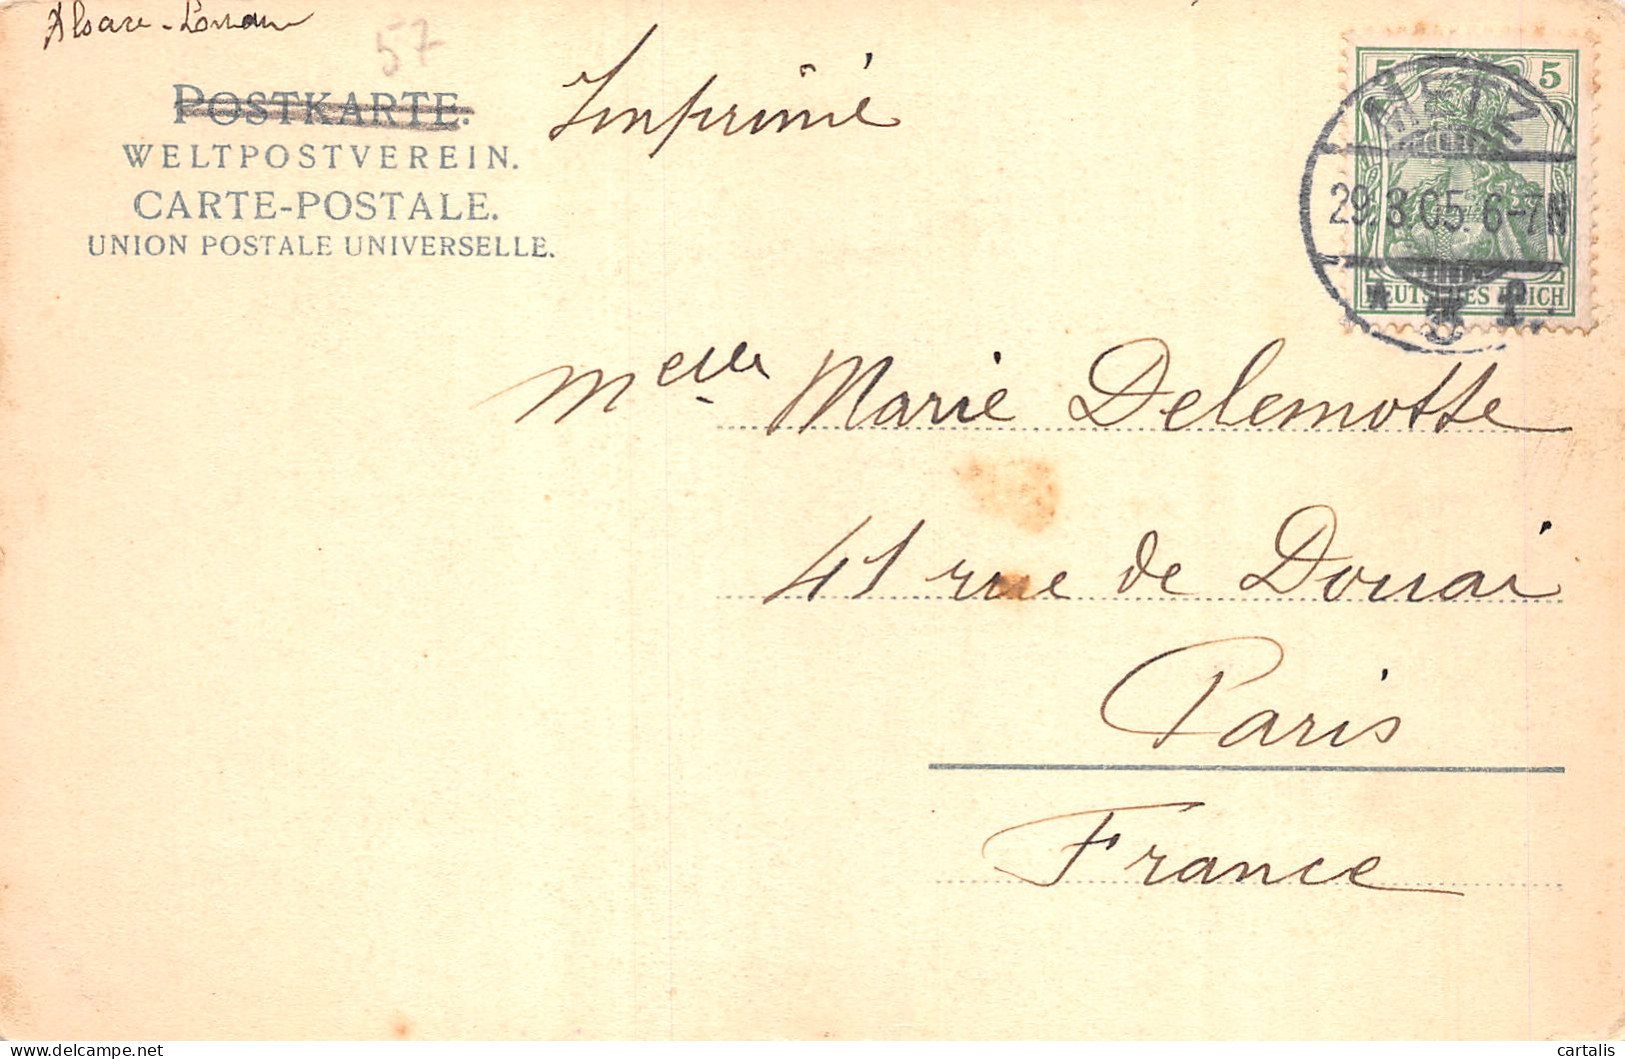 Alsace-Lorraine
57
POSTKARTE.
WELTPOSTVEREIN.
CARTE-POSTALE.
UNION POSTALE UNIVERSELLE.
Imprimé
5 5
METZ
29.8.05. 6-7N
* 1.
DEUTSCHES REICH
Melle Marie Delemotte
41 rue de Douai
Paris
France
cartalis